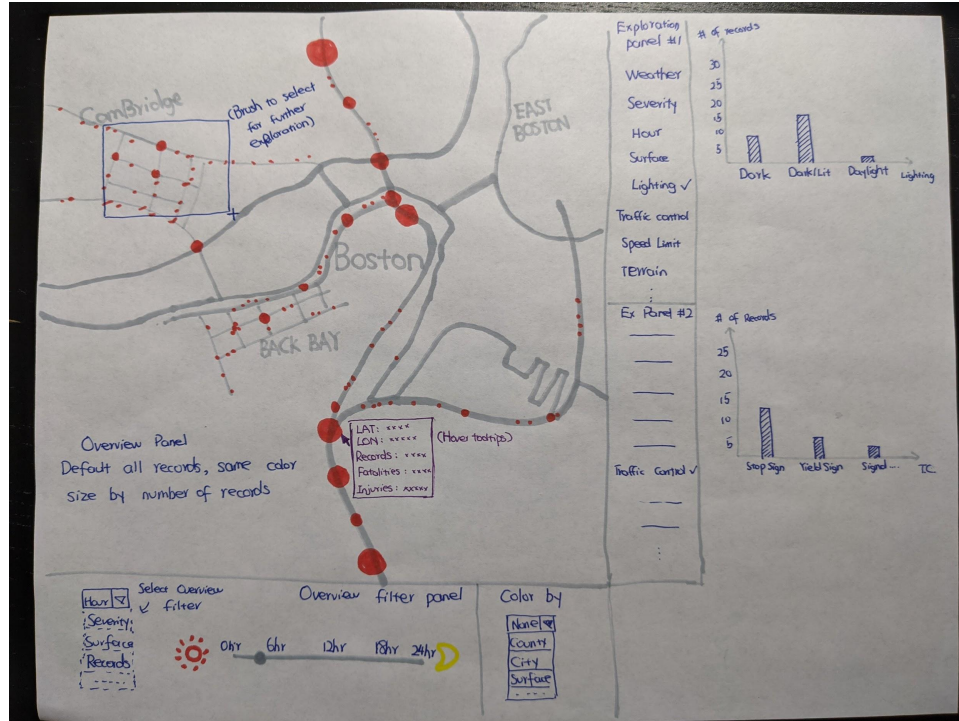 CamBridge
(Brush to select
for further
exploration)
EAST
BOSTON
Boston
BACK BAY
LAT: xxxx
LON: xxxxx
Records: xxxx
Fatalities: xxxx
Injuries: xxxxx
(Hover tooltips)
Overview Panel
Default all records, same color
size by number of records
Exploration
panel #1
Weather
Severity
Hour
Surface
Lighting ✓
Traffic control
Speed Limit
Terrain
# of records
30
25
20
15
10
5
Dark
Dark/Lit
Daylight
Lighting
Ex Panel #2
Traffic Control ✓
# of Records
25
20
15
10
5
Stop Sign
Yield Sign
Signal ...
TC
Hour
Severity
Surface
Records
Select Overview
filter
Overview filter panel
0hr 6hr 12hr 18hr 24hr
Color by
None
County
City
Surface